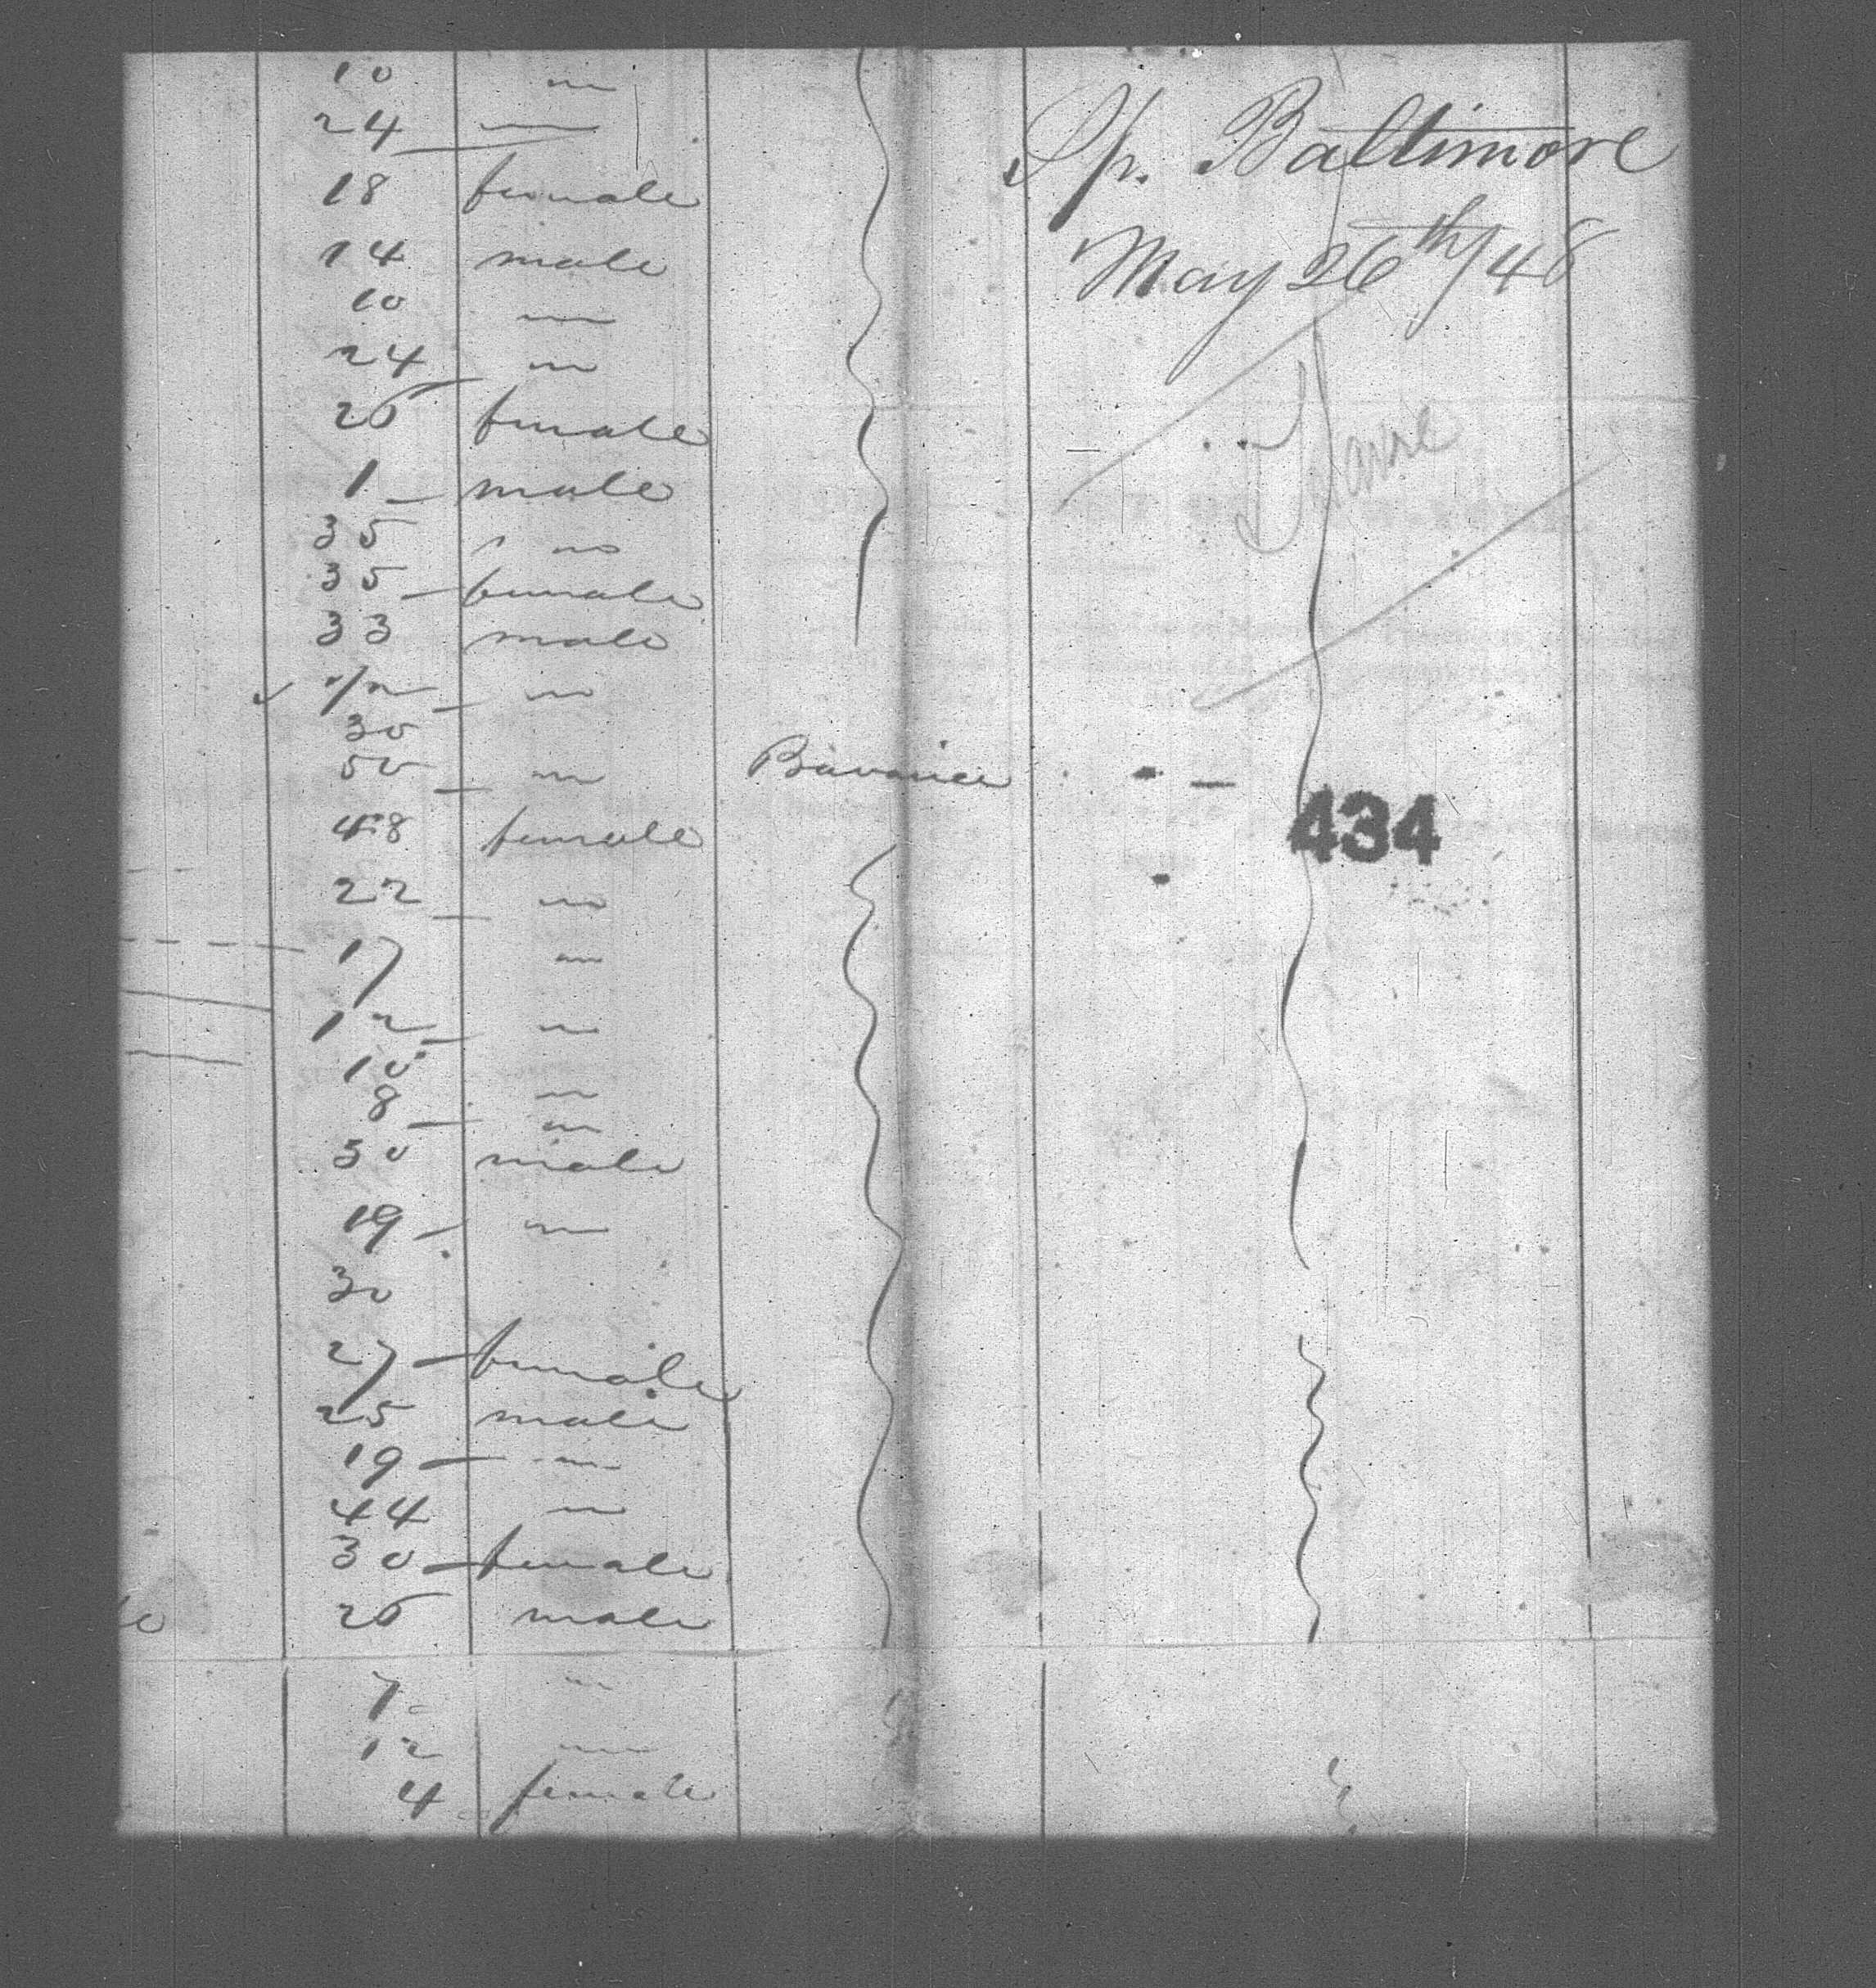 Sp. Baltimore
May 26th/48
Havre
434
10 "
24 "
18 female
14 male
10 "
24 "
26 female
1 male
35 "
35 female
33 male
1/2 "
30
50 " Bavaria
48 female
22 "
17 "
12 "
10
8 "
"
30 male
19 "
30
27 female
25 male
19 "
44 "
30 female
26 male
7 "
12 "
4 female